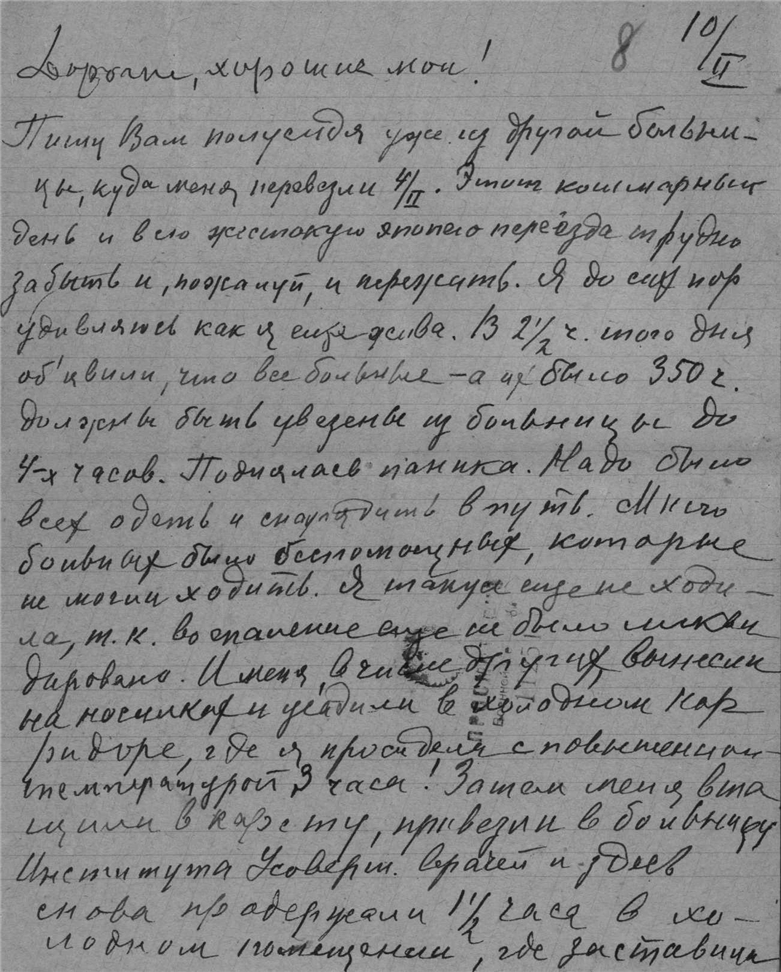 8 10/II
Дорогие, хорошие мои!
Пишу Вам полусидя уже из другой больни-
цы, куда меня перевезли 4/II. Этот кошмарный
день и всю жестокую эпопею переезда трудно
забыть и, пожалуй, и пережить. Я до сих пор
удивляюсь как я еще жива. В 2 1/2 ч. того дня
об'явили, что все больные – а их было 350 ч.
должны быть увезены из больницы до
4-х часов. Поднялась паника. Надо было
всех одеть и снарядить в путь. Много
больных было беспомощных, которые
не могли ходить. Я также еще не ходи-
ла, т.к. воспаление еще не было ликви
дировано. И меня, в числе других, вынесли
на носилках и усадили в холодном кор
ридоре, где я просидела с повышенной
температурой 3 часа! Затем меня вта
щили в карету, привезли в больницу
Института Усоверш. врачей и здесь
снова продержали 1 1/2 часа в хо-
лодном помещении, где заставили